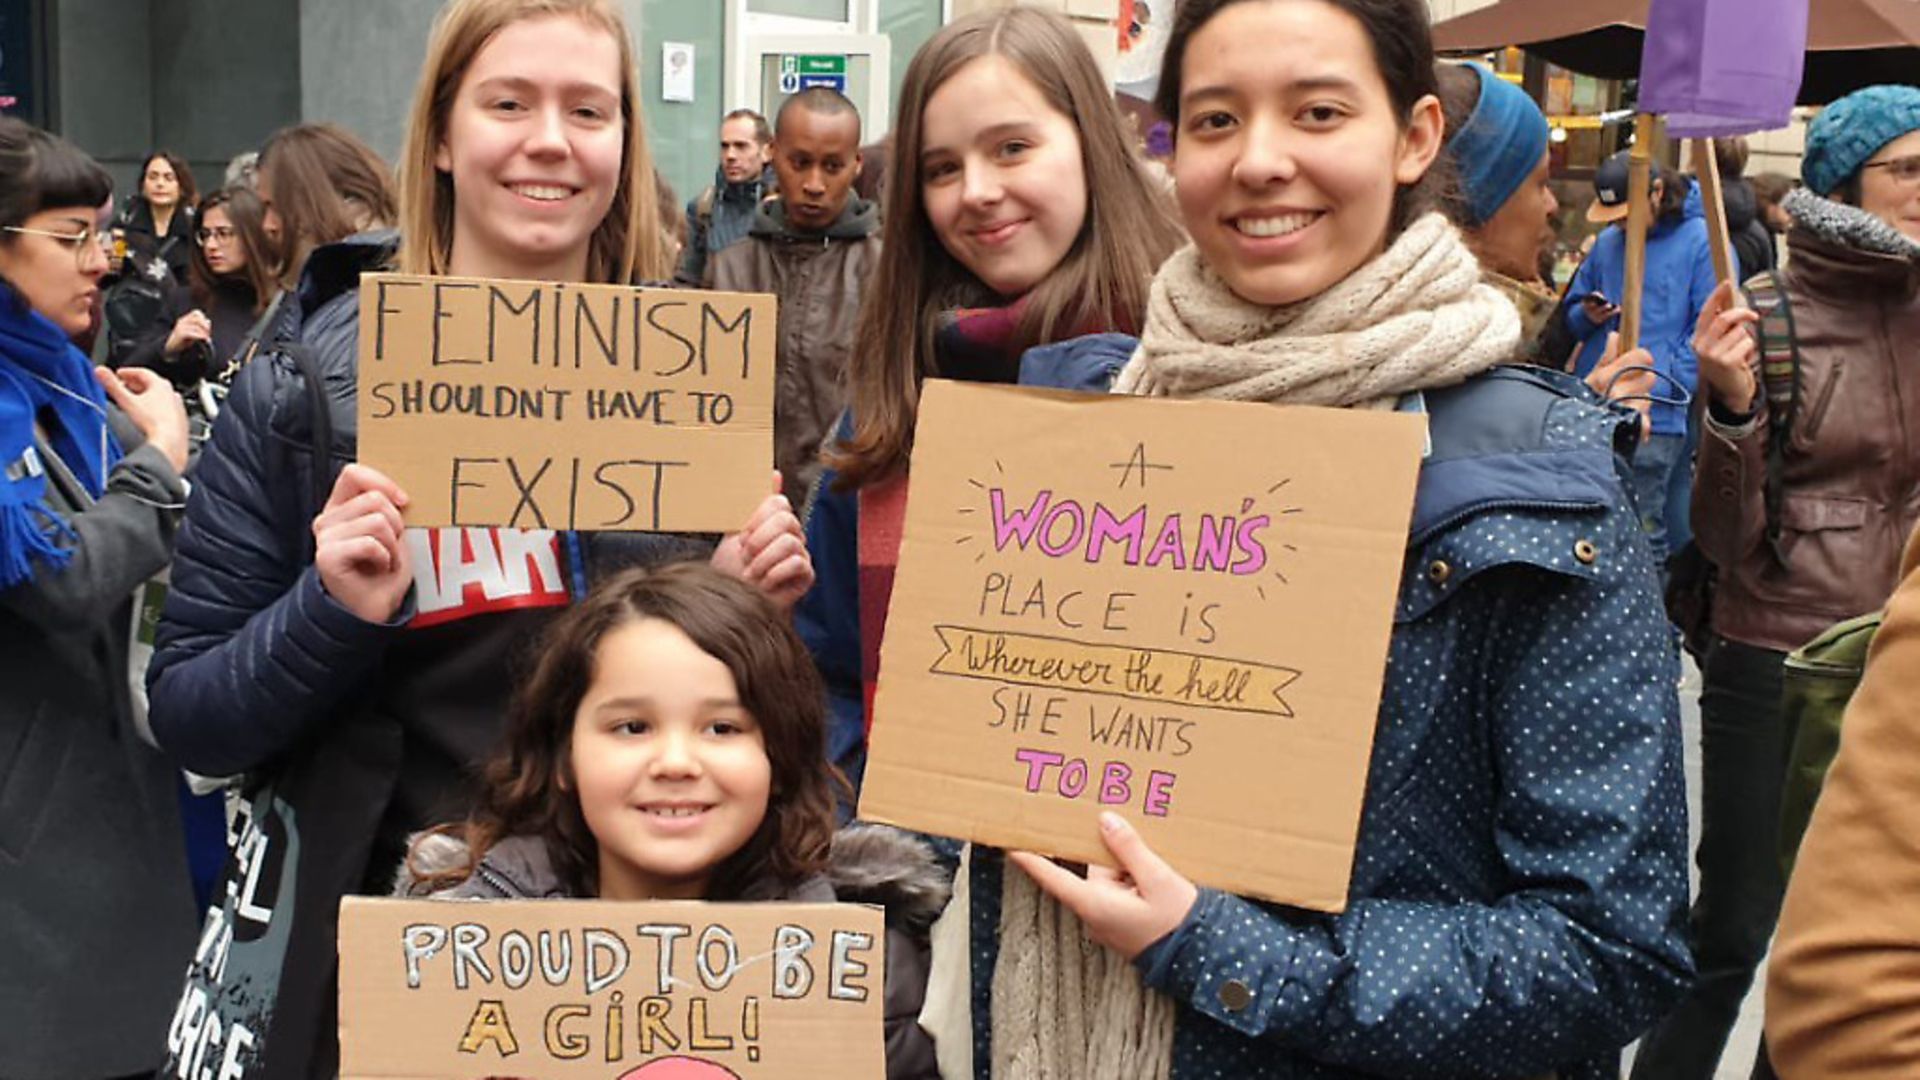 FEMINISM
SHOULDN'T HAVE TO
EXIST
A
WOMAN'S
PLACE IS
Wherever the hell
SHE WANTS
TO BE
PROUD TO BE
A GIRL!